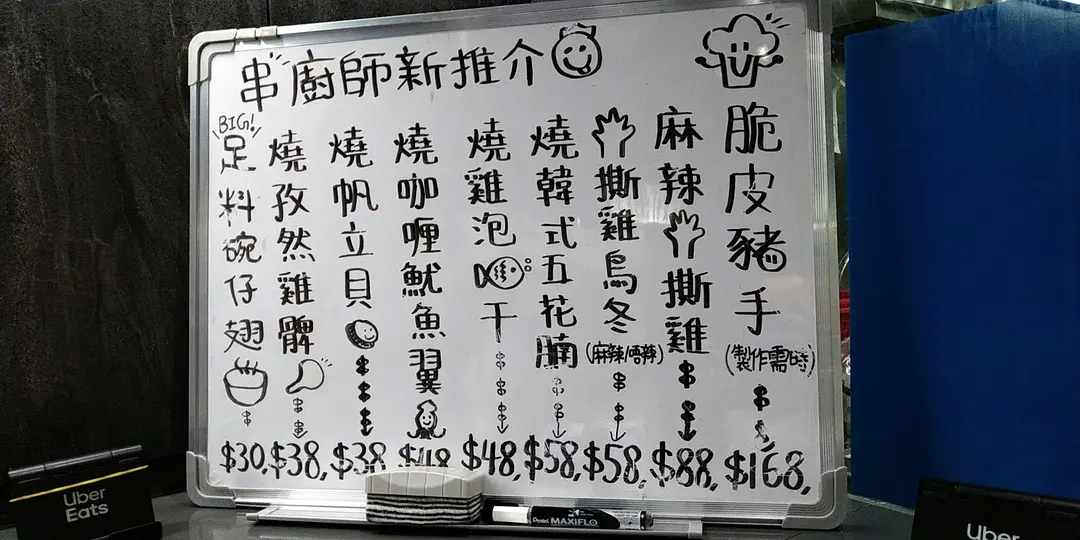 串廚師新推介
脆皮豬手
(製作需時)
$168,
麻辣撕雞
$88,
撕雞烏冬
(麻辣/唔辣)
$58,
燒韓式五花腩
$58,
燒雞泡干
$48,
燒咖喱魷魚翼
$48
燒帆立貝
$38
燒孜然雞髀
$38,
BIG!
足料碗仔翅
$30,
Uber
Eats
Pentel MAXIFLO
Uber